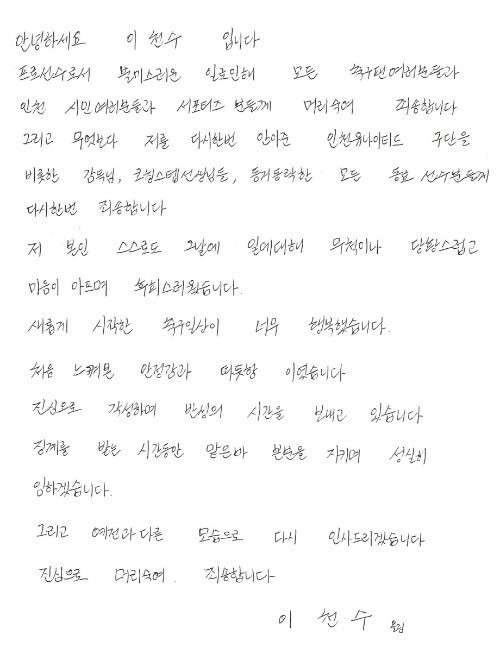 안녕하세요 이천수 입니다
프로선수로서 불미스러운 일로인해 모든 축구팬여러분들과
인천 시민여러분들과 서포터즈 분들께 머리숙여 죄송합니다
그리고 무엇보다 저를 다시한번 안아준 인천유나이티드 구단을
비롯한 감독님, 코칭스텝선생님들, 동거동락한 모든 동료 선수분들께
다시한번 죄송합니다
저 본인 스스로도 그날에 일에대해 무척이나 당황스럽고
마음이 아프며 후회스러웠습니다.
새롭게 시작한 축구인상이 너무 행복했습니다.
처음 느껴본 안정감과 따듯함 이었습니다
진심으로 각성하며 반성의 시간을 보내고 있습니다
징계를 받는 시간동안 맡은바 본분을 지키며 성실히
임하겠습니다.
그리고 예전과다른 모습으로 다시 인사드리겠습니다
진심으로 머리숙여. 죄송합니다
이 천 수 올림